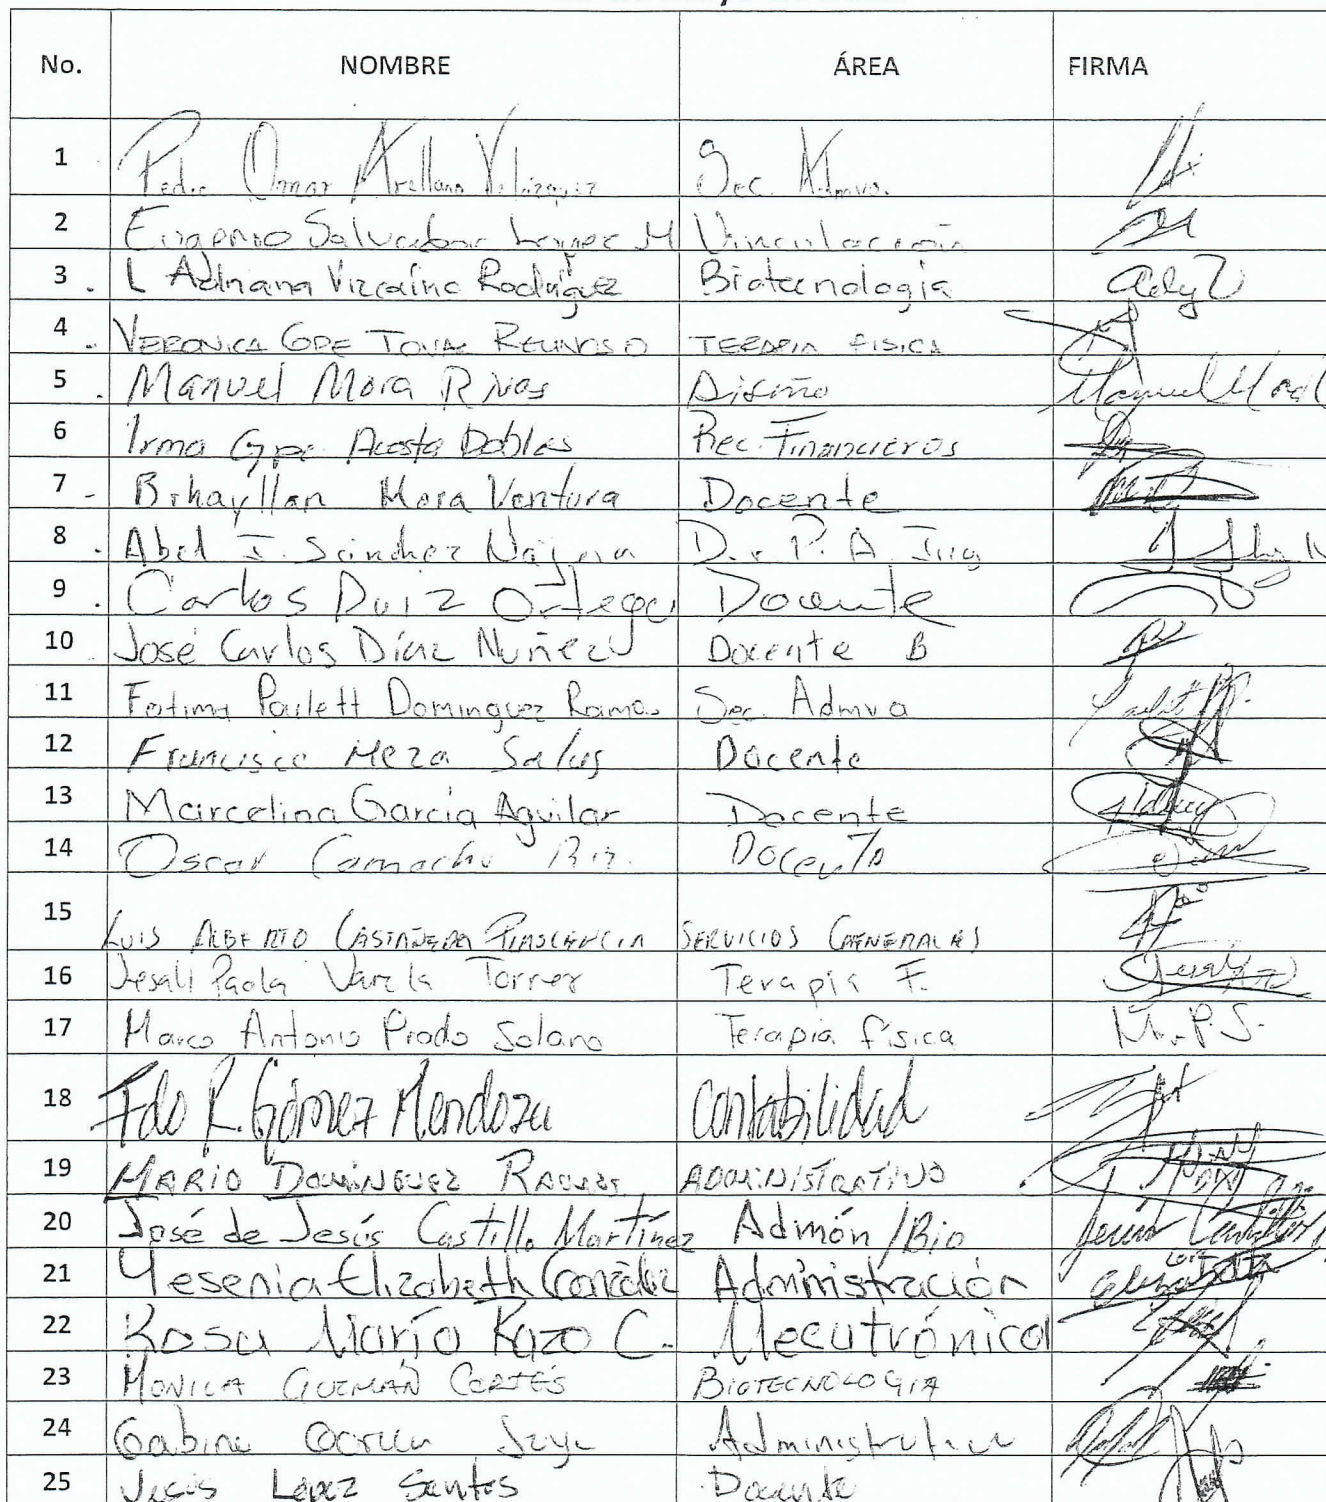 No. NOMBRE ÁREA FIRMA
1 Pedro Omar Arellano Velázquez Sec. Admva.
2 Eugenio Salvador López M Vinculación
3 L Adriana Vizcaíno Rodríguez Biotecnología
4 VERONICA GPE TOVAR REYNOSO TERAPIA FISICA
5 Manuel Mora Rivas Diseño
6 Irma Gpe. Acosta Robles Rec. Financieros
7 Bihayllan Mora Ventura Docente
8 Abel J. Sánchez Nájera D. P. A. Ing
9 Carlos Ruiz Ortega Docente
10 José Carlos Díaz Nuñez Docente B
11 Fatima Paulett Dominguez Ramos Sec. Admva
12 Francisco Meza Salas Docente
13 Marcelina García Aguilar Docente
14 Oscar Camacho Docente
15 LUIS ALBERTO CASTAÑEDA PLASCENCIA SERVICIOS GENERALES
16 Jesali Paola Varela Torres Terapia F.
17 Marco Antonio Prado Solano Terapia física M. P. S.
18 Fdo R. Gómez Mendoza Contabilidad
19 MARIO DOMINGUEZ RAMOS ADMINISTRATIVO
20 José de Jesús Castillo Martínez Admón/Bio
21 Yesenia Elizabeth González Administración
22 Rosa María Razo C. Mecatrónica
23 MONICA GUZMÁN CORTÉS BIOTECNOLOGIA
24 Gabino Administrativo
25 Jesús López Santos Docente